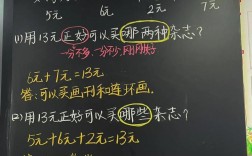 5元 6元 2元 7元
(1)用13元正好可以买哪两种杂志?
一分不多,一分不少,刚刚好
6元+7元=13元
答:可以买画刊和连环画.
(2)用13元正好可以买哪些杂志?
5元+6元+2元=13元